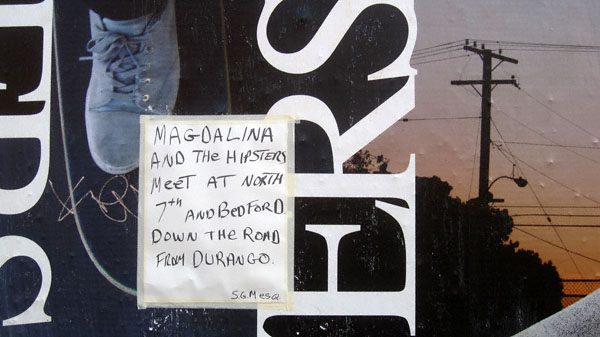 MAGDALINA
AND THE HIPSTERS
MEET AT NORTH
7th AND BEDFORD.
DOWN THE ROAD
FROM DURANGO.
S.G. Mesa
ERS